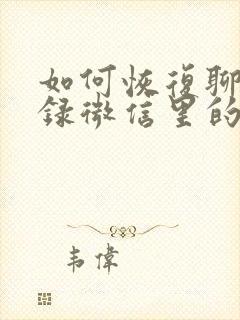 如何恢復聊
錄微信里的
韦偉